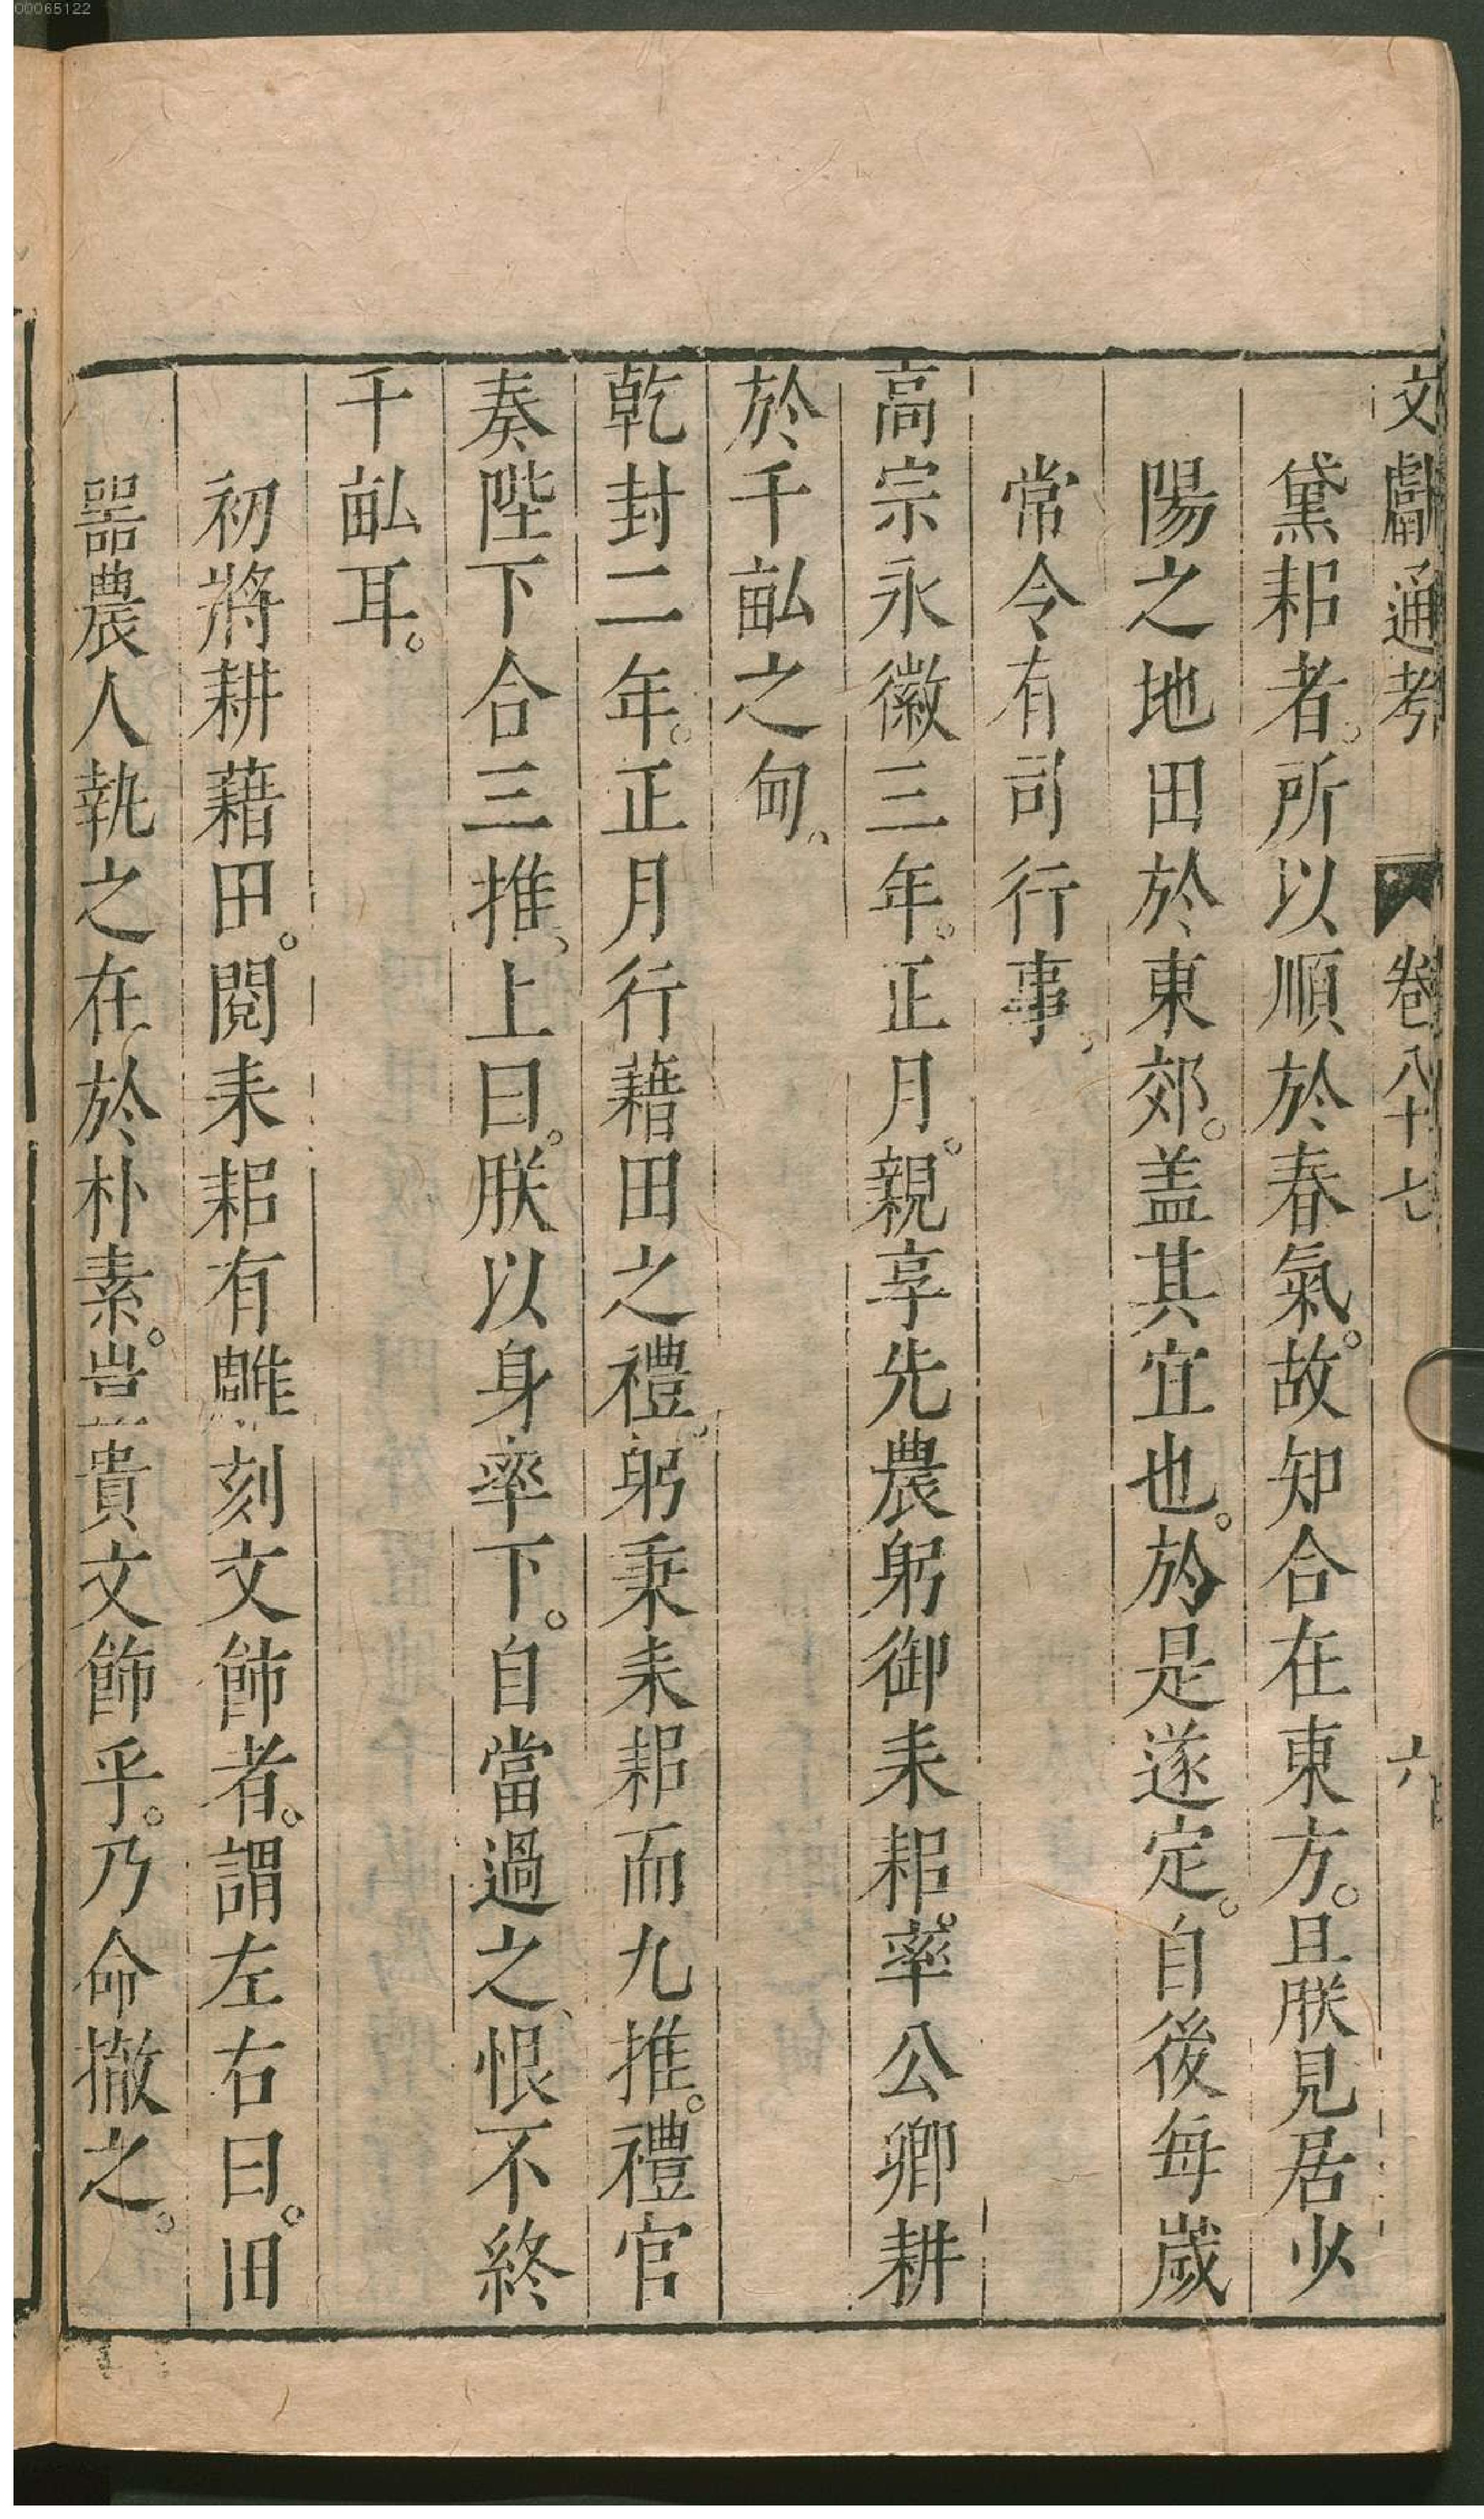 00065122
文獻通考 卷八十七 六
黛耜者。所以順於春氣。故知合在東方。且朕見居少
陽之地田於東郊。盖其宜也。於是遂定。自後每歲
常令有司行事、
高宗永徽三年。正月。親享先農躬御耒耜。率公卿耕
於千畝之甸、
乾封二年。正月行藉田之禮。躬秉耒耜而九推。禮官
奏陛下合三推、上曰。朕以身率下。自當過之、恨不終
千畝耳。
初將耕藉田。閱耒耜有雕刻文飾者。謂左右曰。田
噐農人執之在於朴素。豈貴文飾乎。乃命撤之。